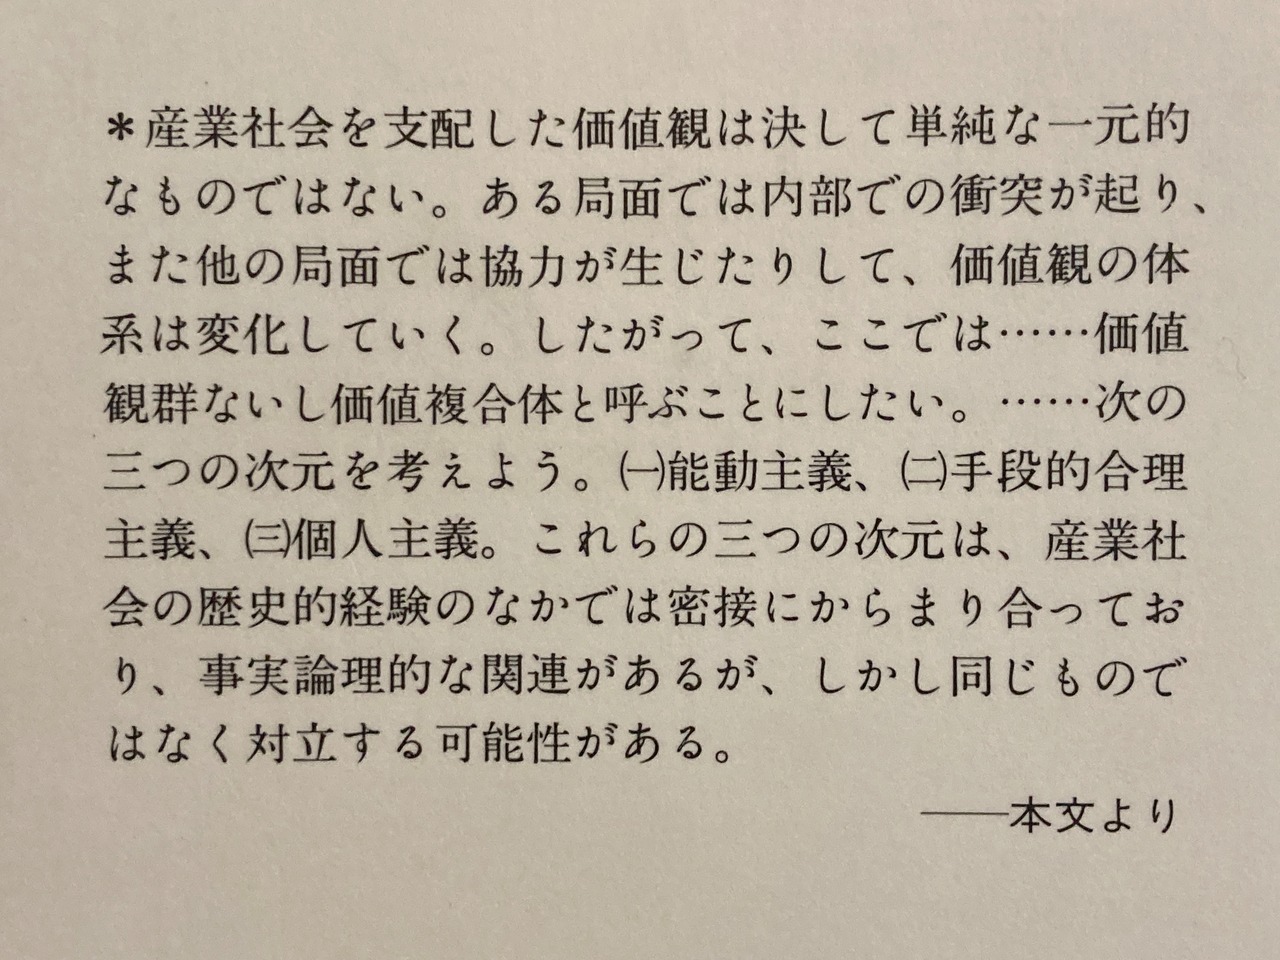 ＊産業社会を支配した価値観は決して単純な一元的
なものではない。ある局面では内部での衝突が起り、
また他の局面では協力が生じたりして、価値観の体
系は変化していく。したがって、ここでは……価値
観群ないし価値複合体と呼ぶことにしたい。……次の
三つの次元を考えよう。㈠能動主義、㈡手段的合理
主義、㈢個人主義。これらの三つの次元は、産業社
会の歴史的経験のなかでは密接にからまり合ってお
り、事実論理的な関連があるが、しかし同じもので
はなく対立する可能性がある。
——本文より